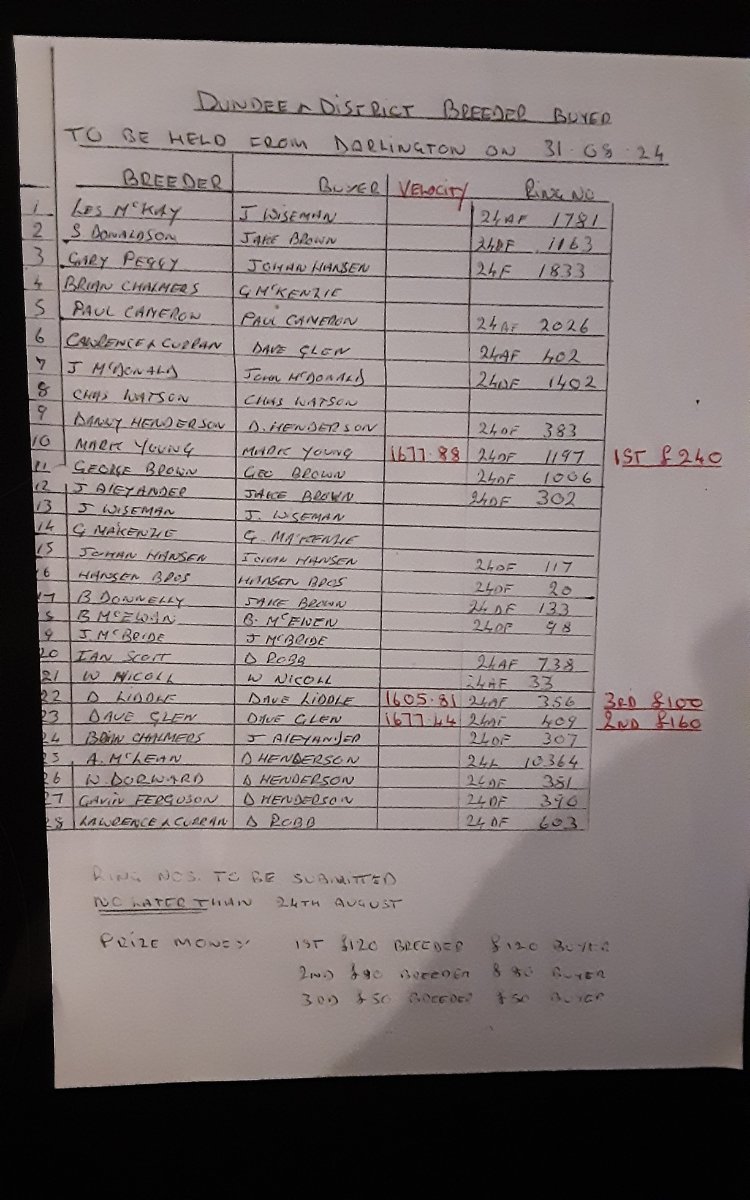 DUNDEE & DISTRICT BREEDER BUYER
TO BE HELD FROM DARLINGTON ON 31.08.24
BREEDER BUYER VELOCITY RING NO
1 LES McKAY J WISEMAN 24AF 1781
2 S DONALDSON JAKE BROWN 24DF 1163
3 GARY PEGGY JOHAN HANSEN 24F 1833
4 BRIAN CHALMERS G McKENZIE
5 PAUL CAMERON PAUL CAMERON 24AF 2026
6 LAWRENCE & CURRAN DAVE GLEN 24AF 402
7 J McDONALD JOHN McDONALD 24DF 1402
8 CHAS WATSON CHAS WATSON
9 DANNY HENDERSON D. HENDERSON 24DF 383
10 MARK YOUNG MARK YOUNG 1677.88 24DF 1197 1ST £240
11 GEORGE BROWN GEO BROWN 24DF 1006
12 J ALEYANDER JAKE BROWN 24DF 302
13 J WISEMAN J. WISEMAN
14 G MAKENZIE G. MAKENZIE
15 JOHAN HANSEN JOHAN HANSEN 24DF 117
16 HANSEN BROS HANSEN BROS 24DF 20
17 B DONNELLY JAKE BROWN 24DF 133
18 B McEWAN B. McEWEN 24DF 98
19 J McBRIDE J McBRIDE
20 IAN SCOTT D ROBB 24AF 738
21 W NICOLL W NICOLL 24AF 33
22 D LIDDLE DAVE LIDDLE 1605.81 24AF 356 3RD £100
23 DAVE GLEN DAVE GLEN 1677.44 24AF 409 2ND £160
24 BRIAN CHALMERS J ALEYANDER 24DF 307
25 A. McLEAN D HENDERSON 10364
26 W. DORWARD D HENDERSON 24DF 381
27 GAVIN FERGUSON D HENDERSON 24DF 390
28 LAWRENCE & CURRAN D ROBB 24DF 603
RING NOS. TO BE SUBMITTED
NO LATER THAN 24TH AUGUST
PRIZE MONEY 1ST £120 BREEDER £120 BUYER
2ND £80 BREEDER £80 BUYER
3RD £50 BREEDER £50 BUYER